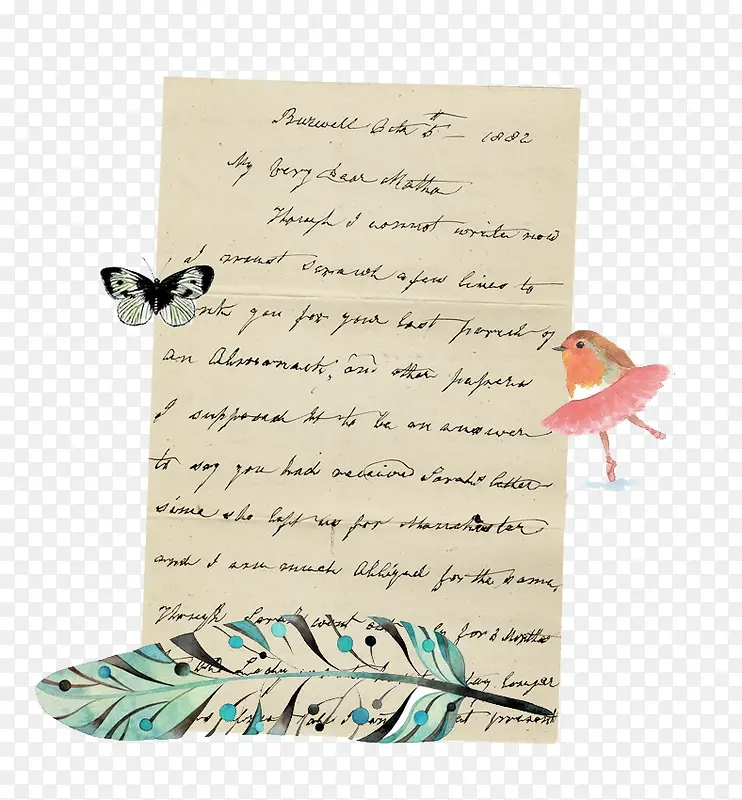 Burwell Octr 5th — 1882
My Very Dear Matha
Though I cannot write now
I must scrawl a few lines to
you for your last parcel of
an Almanack, and other papers
I supposed it to be an answer
to say you had received Sarahs letter
since she left us for Manchester
and I am much obliged for the same,
Though Sarah went only for 3 Months
longer
at present